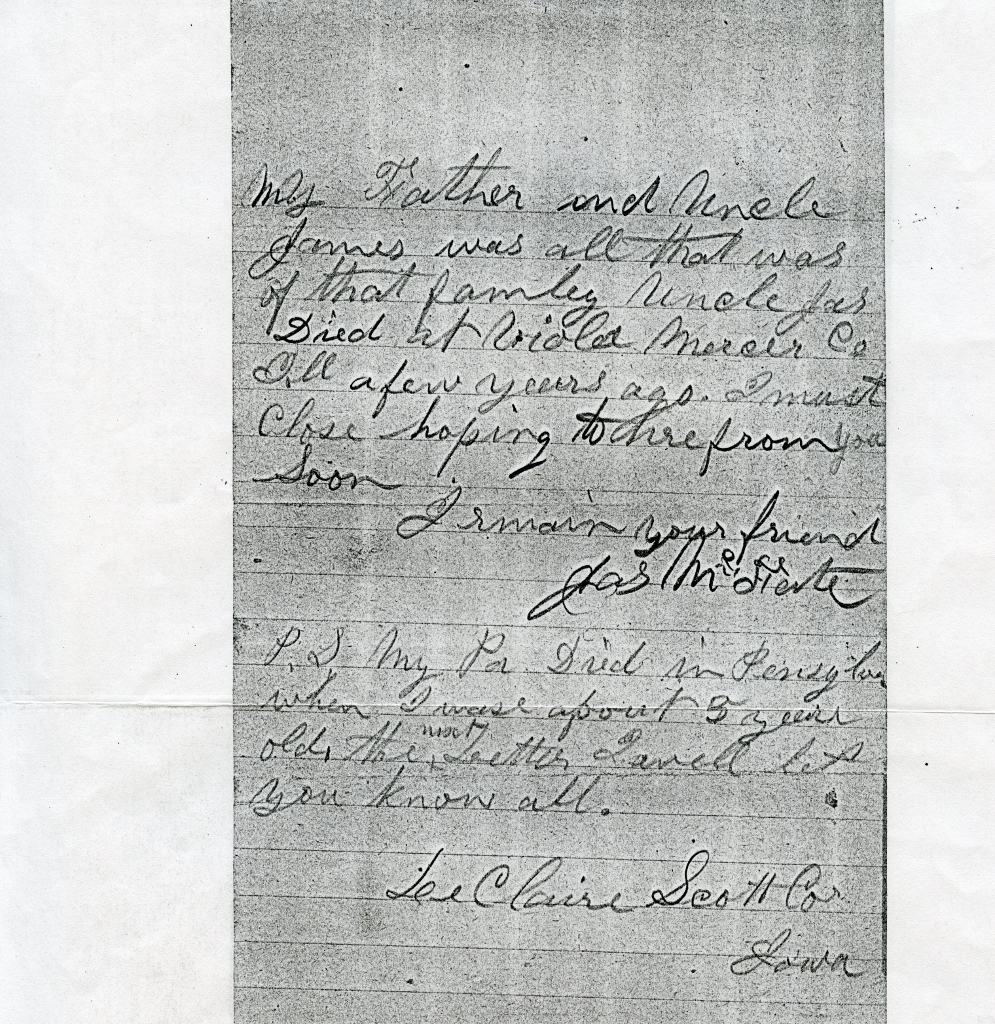 My Father and Uncle
James was all that was
of that famley Uncle Jas
Died at Viola Mercer Co
Ill a few years ago. I must
Close hoping to hre from you
Soon
I rmain your friend
Jas
P.S. My Pa Died in Pensylva
when I wase about 5 years
old, the next Letter I will let
you know all.
Le Claire Scott Co
Iowa